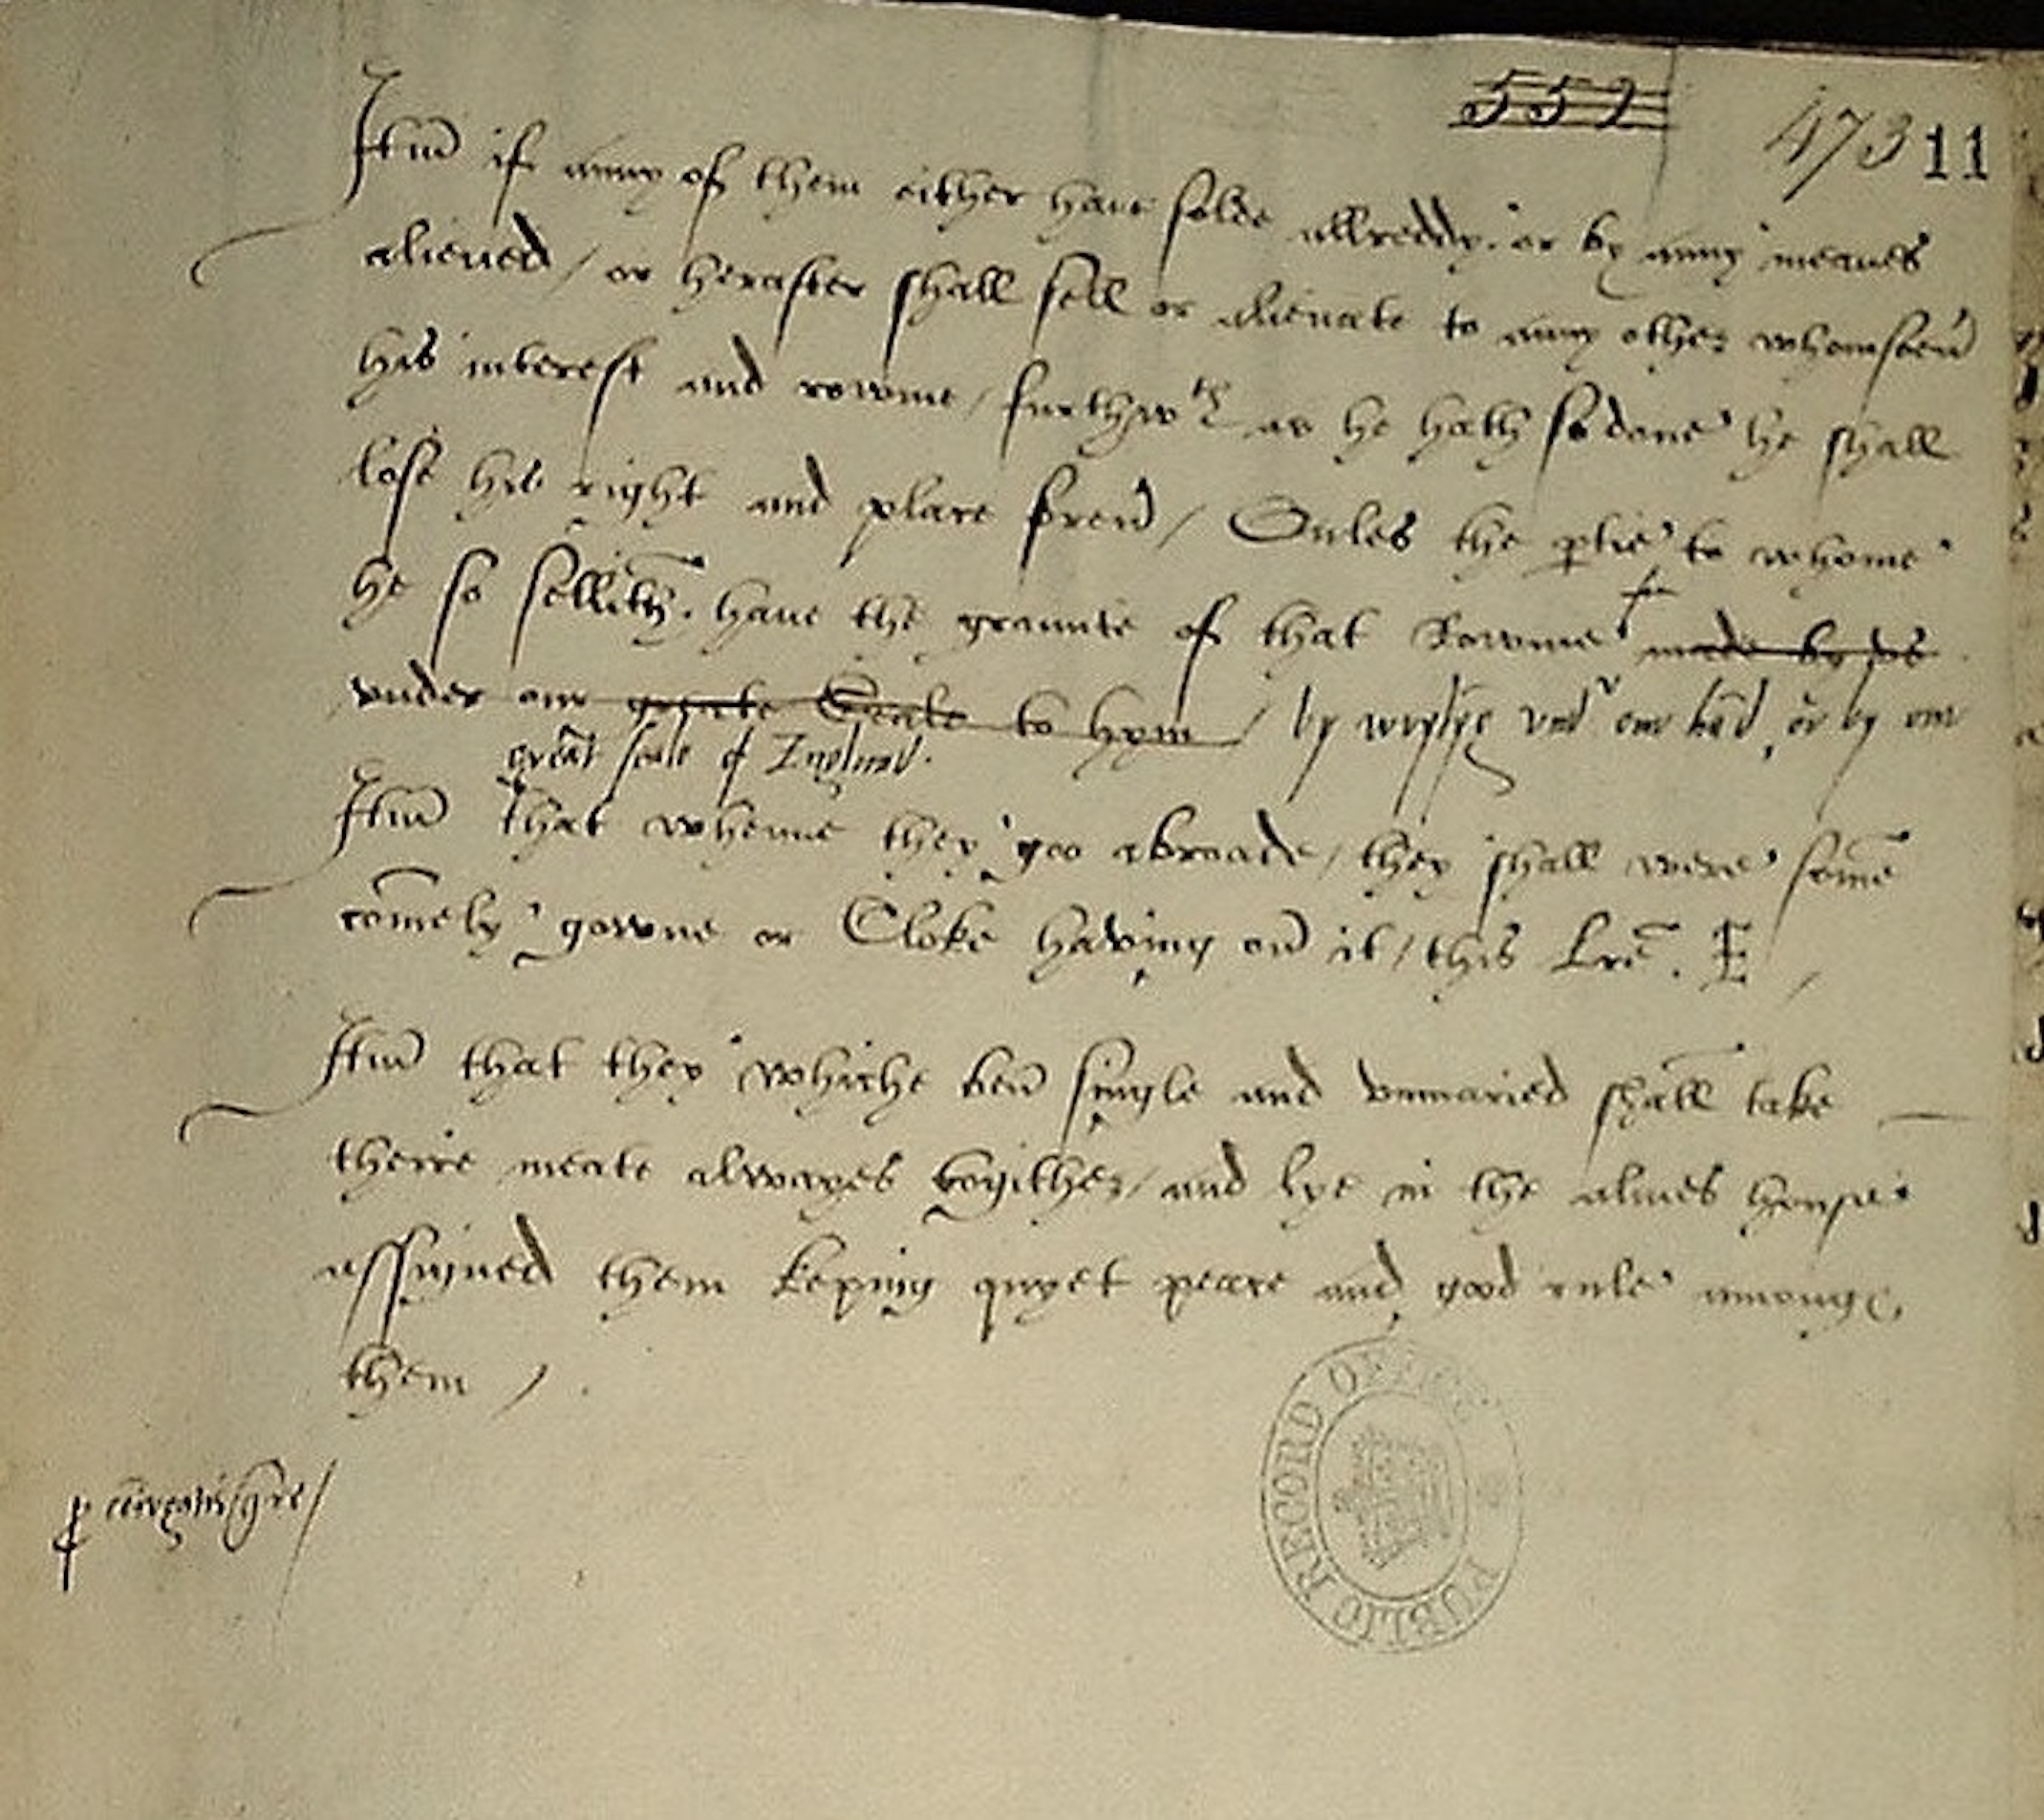 559
473 11
Itm̃ if anny of them either have solde allreddy or by anny meanes
aliened / or herafter shall sell or alienate to anny other whomsoeũ
his interest and rowme / furthwth as he hath so done he shall
lose his right and place foreũ / Onles the ptie to whome
he so sellith. have the graunte of that Rowme made by vs
vnder our pryvate Seale to hym / by wrytyng vnd our hãd, or by our
great seale of Inglond.
Itm̃ that whenne they goo abroade / they shall were some
com̃ely gowne or Cloke having on it / this Lrẽ. E /
Itm̃ that they whiche ben single and vnmaried shall take
theire meate alwayes togither / and lye in the almes house
assigned them keping quyet peace and good rule amonge
them /.
PUBLIC RECORD OFFICE